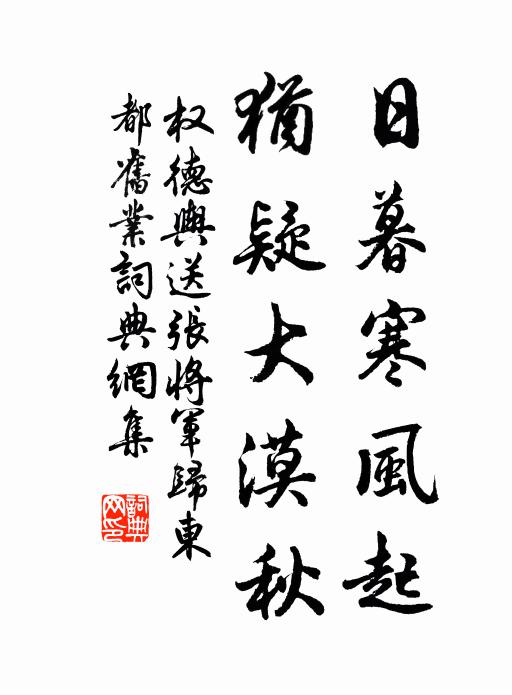 日暮寒風起
猶疑大漠秋
权德輿送張將軍歸東
都舊業詞典網集
詞典
网印